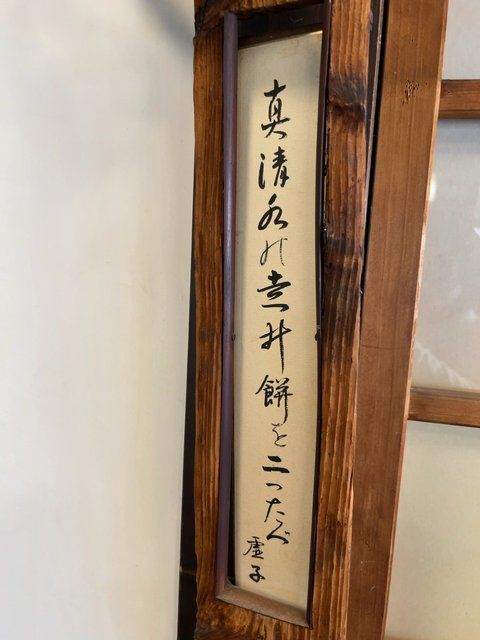 真清水の走井餅を二つたべ
虚子